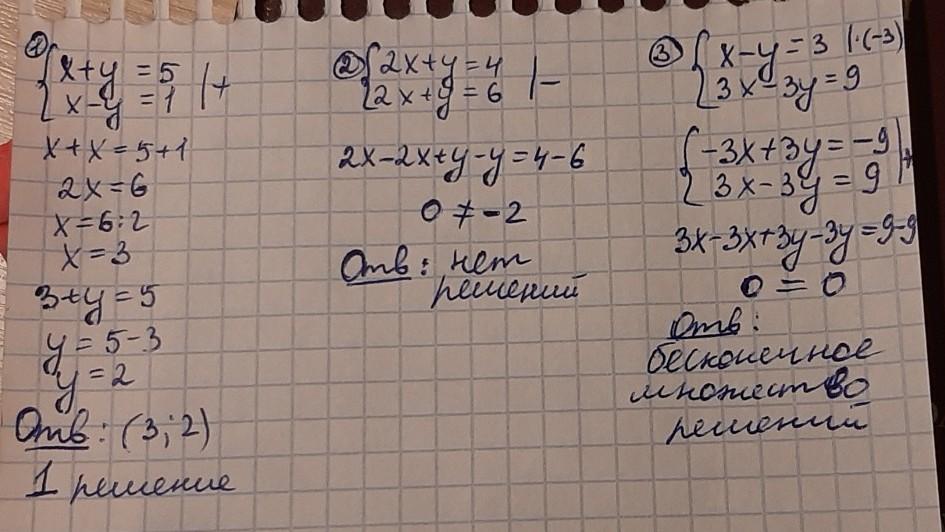 ① { x+y = 5 |+
x-y = 1
x+x = 5+1
2x = 6
x = 6:2
x = 3
3+y = 5
y = 5-3
y = 2
Отв: (3; 2)
1 решение
② { 2x+y = 4 |-
2x+y = 6
2x-2x+y-y = 4-6
0 ≠ -2
Отв: нет
решений
③ { x-y = 3 |·(-3)
3x-3y = 9
{ -3x+3y = -9 |+
3x-3y = 9
3x-3x+3y-3y = 9-9
0 = 0
Отв:
бесконечное
множество
решений